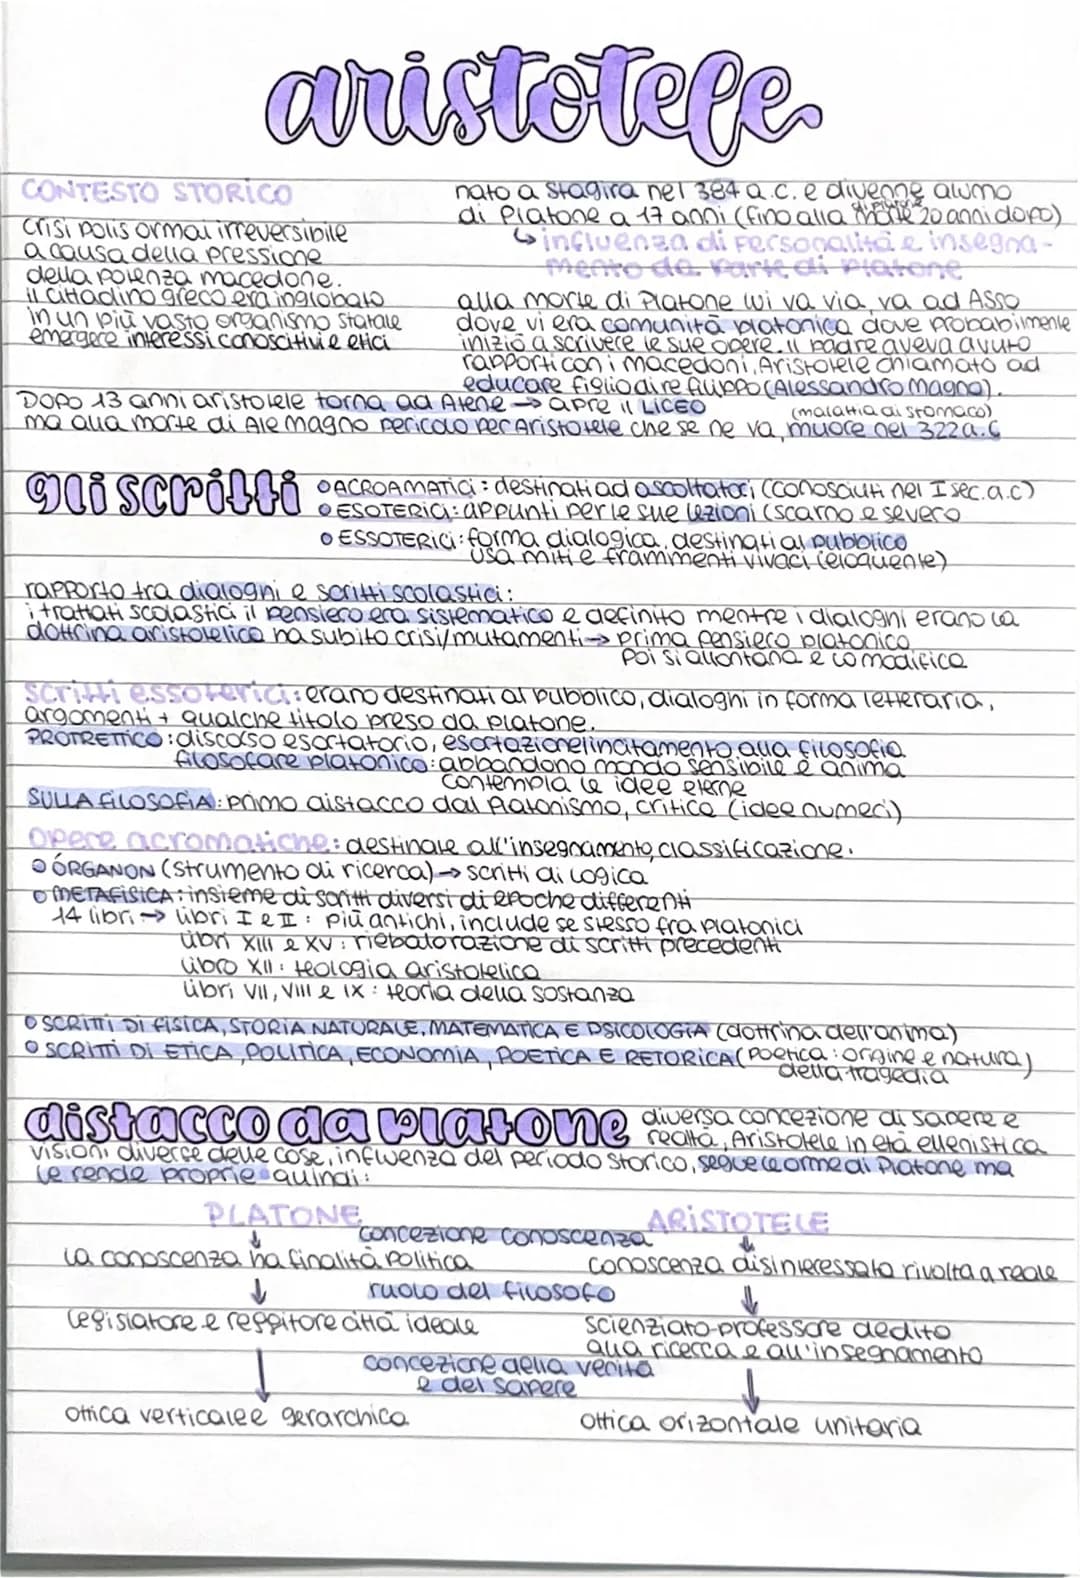 aristotele
CONTESTO STORICO
crisi polis ormai irreversibile
a causa della pressione
della potenza macedone.
il cittadino greco era inglobato
in un più vasto organismo statale
emergere interessi conoscitivi e etici
nato a Stagira nel 384 a.c. e divenne alumo
di Platone a 17 anni (fino alla morte di Platone 20 anni dopo)
↳ influenza di personalità e insegna-
mento da parte di Platone
alla morte di Platone lui va via, va ad Asso
dove vi era comunità platonica dove probabilmente
iniziò a scrivere le sue opere. il padre aveva avuto
rapporti con i macedoni, Aristotele chiamato ad
educare figlio di re filippo (Alessandro Magno).
DOPO 13 anni aristotele torna ad Atene → apre il LICEO
(malattia di stomaco)
ma alla morte di Ale magno pericolo per Aristotele che se ne va, muore nel 322 a.C
gli scritti
ACROAMATICI: destinati ad ascoltatori (conosciuti nel I sec. a.c)
ESOTERICI: appunti per le sue lezioni (scarno e severo
ESSOTERICI: forma dialogica, destinati al pubblico
usa miti e frammenti vivaci (eloquente)
rapporto tra dialoghi e scritti scolastici:
i trattati scolastici il pensiero era sistematico e definito mentre i dialoghi erano la
dottrina aristotelica ha subito crisi/mutamenti → prima pensiero platonico
poi si allontana e lo modifica
scritti essoterici: erano destinati al pubblico, dialoghi in forma letteraria,
argomenti + qualche titolo preso da platone.
PROTRETTICO: discorso esortatorio, esortazione/incitamento alla filosofia
filosofare platonico: abbandono mondo sensibile e anima
contempla le idee eterne
SULLA FILOSOFIA: primo distacco dal Platonismo, critica (idee numeri)
opere acromatiche: destinate all'insegnamento, classificazione.
ÓRGANON (strumento di ricerca) → scritti di logica
METAFISICA: insieme di scritti diversi di epoche differenti
14 libri → libri I e II: più antichi, include se stesso fra platonici
libri XIII e XV: rielaborazione di scritti precedenti
libro XII: teologia aristotelica
libri VII, VIII e IX: teoria della sostanza
SCRITTI DI FISICA, STORIA NATURALE, MATEMATICA E PSICOLOGIA (dottrina dell'anima)
SCRITTI DI ETICA, POLITICA, ECONOMIA, POETICA E RETORICA (poetica: origine e natura
della tragedia)
distacco da platone
diversa concezione di sapere e
realtà, Aristotele in età ellenistica
visioni diverse delle cose, influenza del periodo storico, segue le orme di Platone ma
le rende proprie quindi:
PLATONE ARISTOTELE
concezione conoscenza
la conoscenza ha finalità politica conoscenza disinteressata rivolta a reale
ruolo del filosofo
legislatore e reggitore città ideale scienziato-professore dedito
alla ricerca e all'insegnamento
concezione della verità
e del sapere
ottica verticale e gerarchica ottica orizzontale unitaria